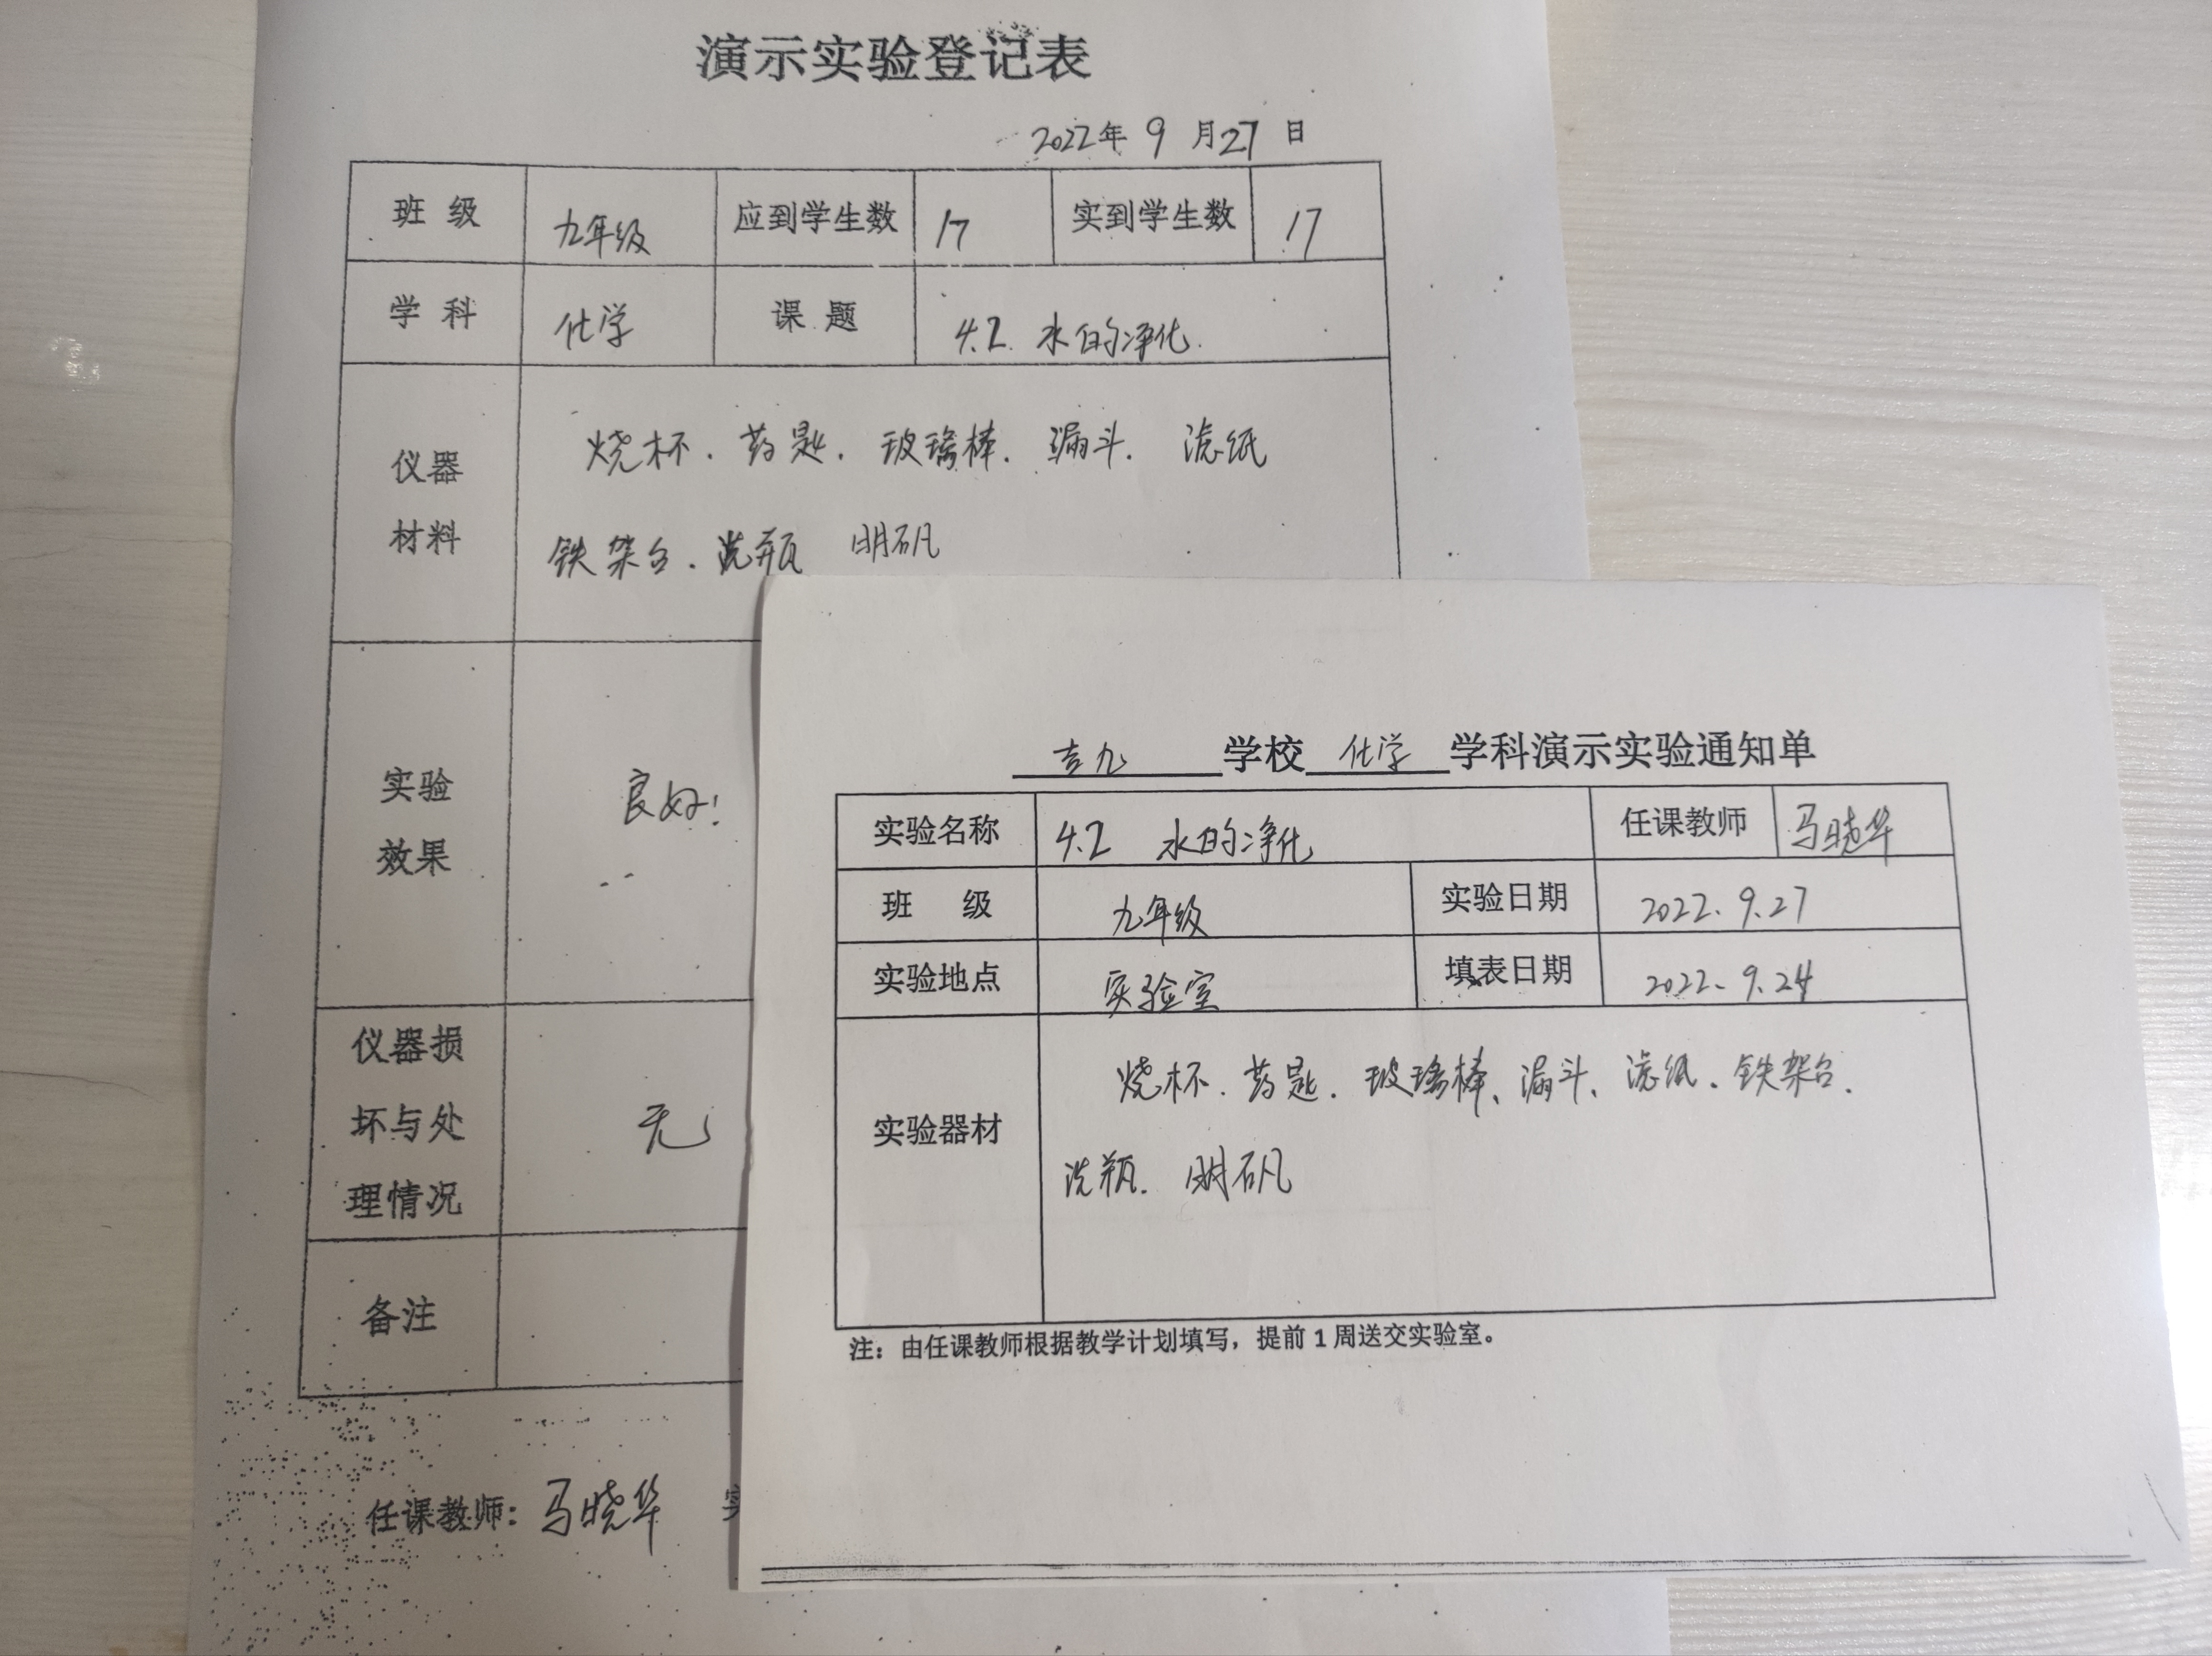 演示实验登记表
2022年 9 月27 日
班 级 九年级 应到学生数 17 实到学生数 17
学 科 化学 课 题 4.2. 水的净化.
仪器
材料
烧杯. 药匙. 玻璃棒. 漏斗. 滤纸
铁架台. 洗瓶 明矾
实验
效果
良好!
仪器损
坏与处
理情况
无
备注
任课教师: 马晓华
吉九 学校 化学 学科演示实验通知单
实验名称 4.2 水的净化 任课教师 马晓华
班 级 九年级 实验日期 2022.9.27
实验地点 实验室 填表日期 2022.9.24
实验器材
烧杯. 药匙. 玻璃棒、漏斗、滤纸. 铁架台.
洗瓶. 明矾
注：由任课教师根据教学计划填写，提前 1 周送交实验室。